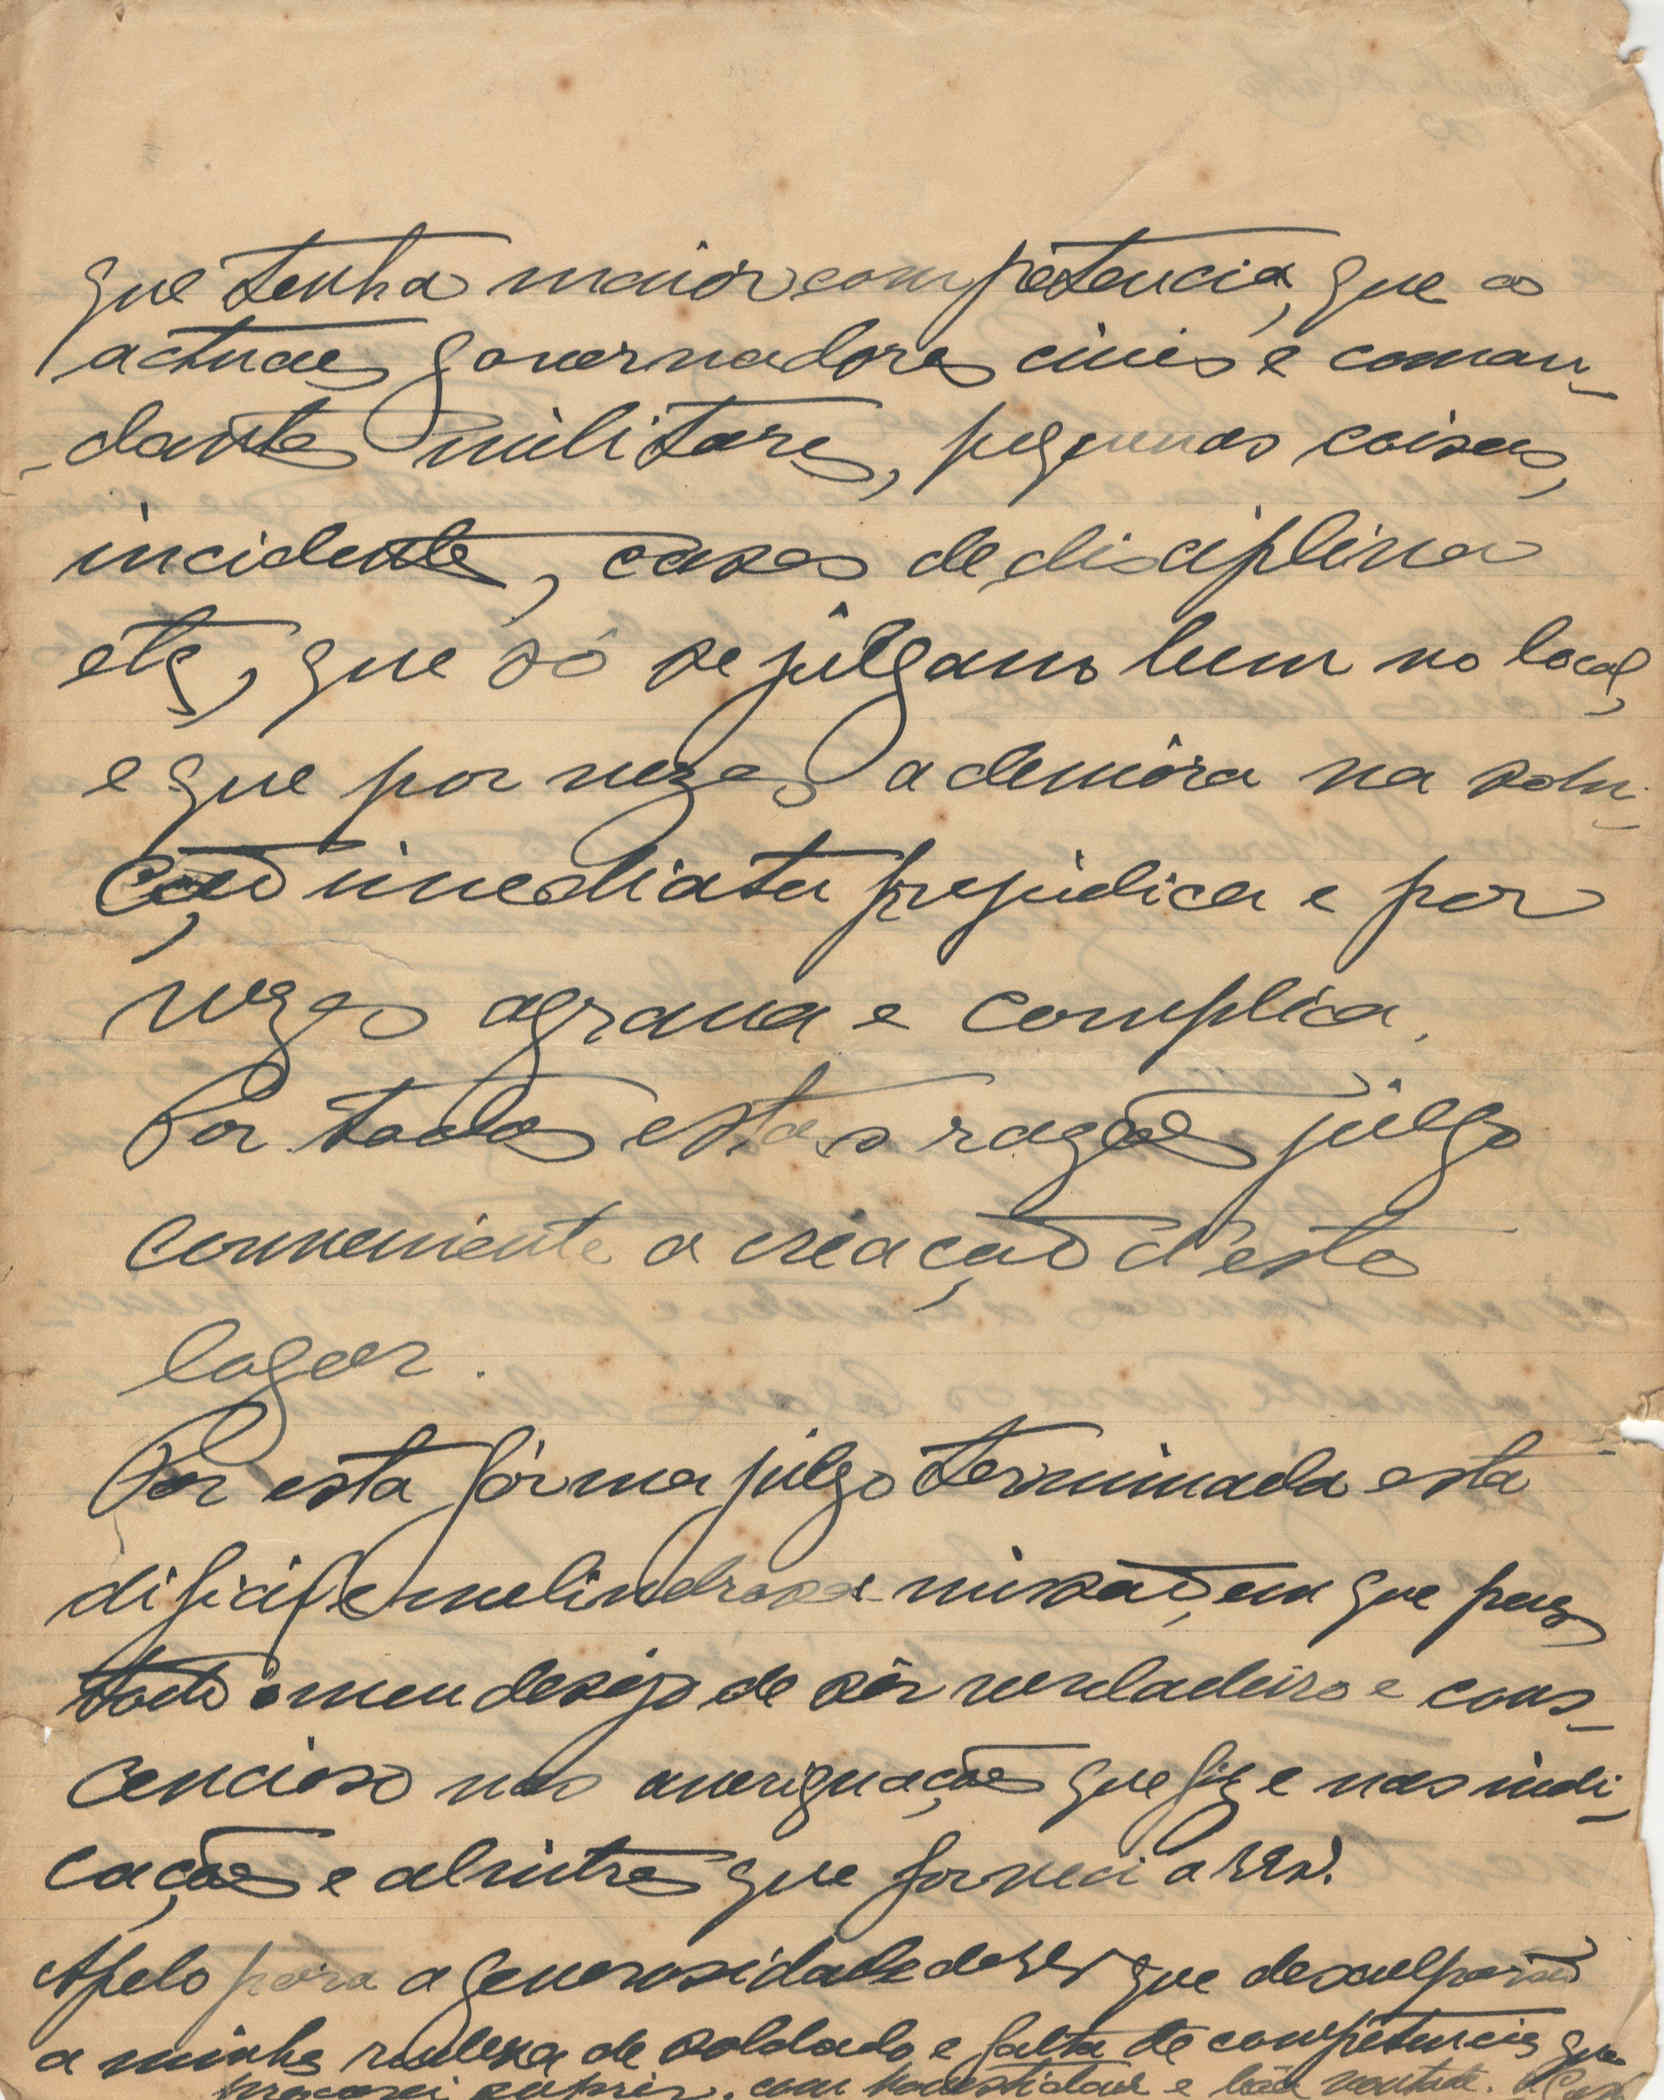 que tenha maior competencia, que os
actuaes governadores civis e coman-
-dantes militares, pequenas coisas,
incidentes, casos de disciplina
etc, que só se julgam bem no local,
e que por vezes a demóra na solu-
ção immediata prejudica e por
vezes agrava e complica.
Por todas estas razões julgo
conveniente a creação d'este
logar.
Por esta fórma julgo terminada esta
dificil e melindrosa missão, em que puz
todo o meu desejo de sêr verdadeiro e cons-
cencioso nas averiguações que fiz e nas indi-
cações e alvitres que forneci a
Apelo para a generosidade de que desculparão
a minha rudeza de soldado e falta de competencia que
procurei suprir, com honestidade e bôa vontade.